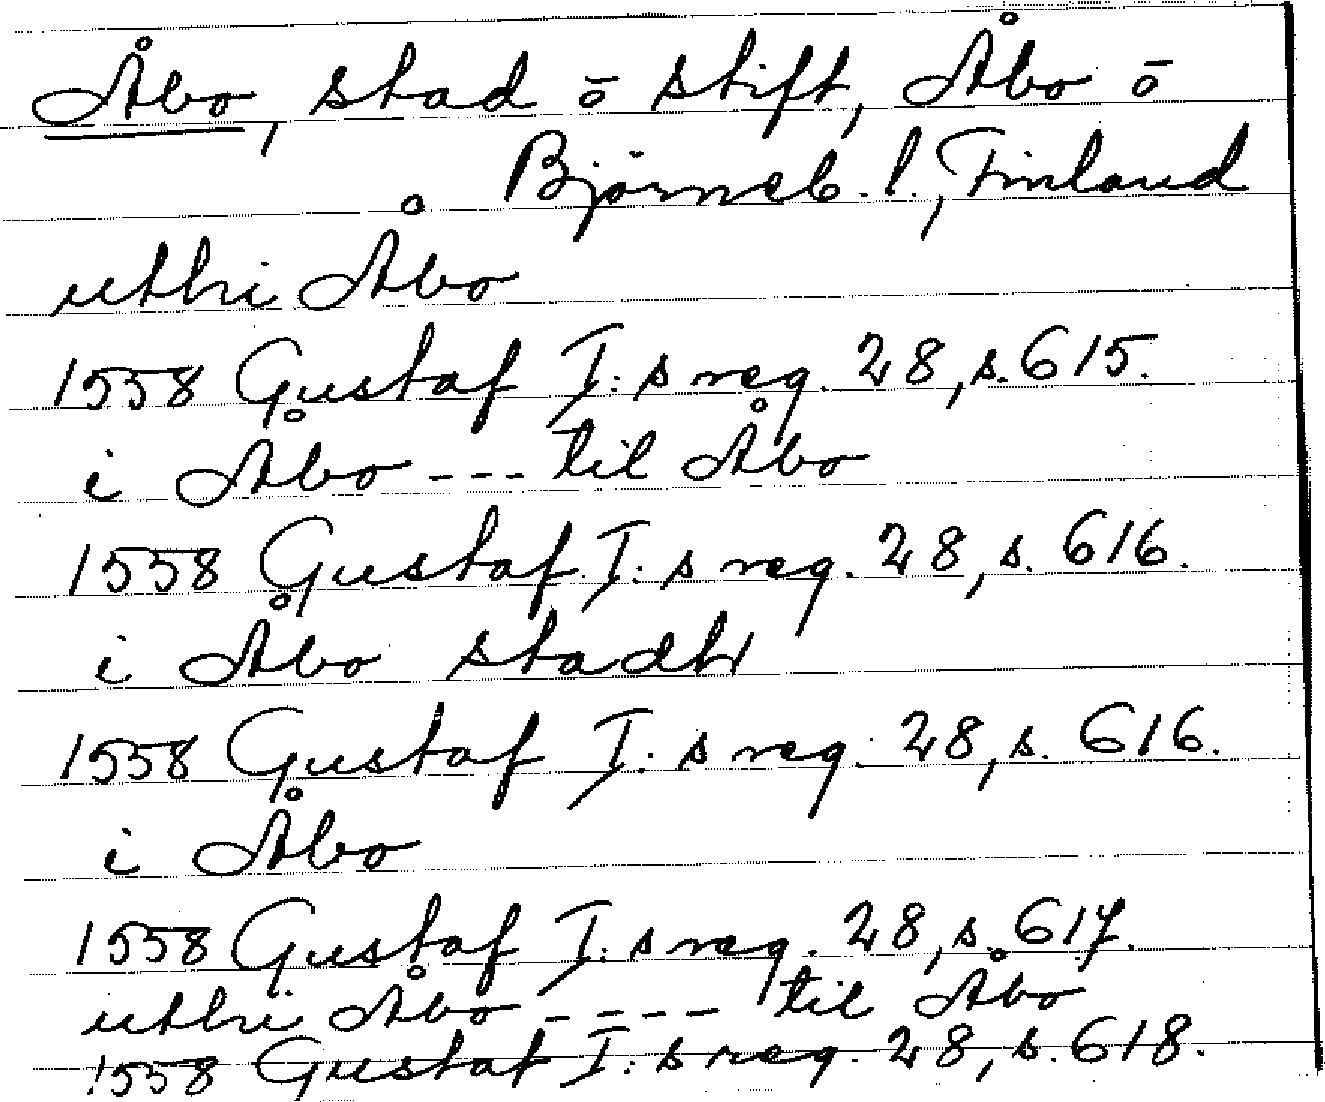 Åbo, stad ō stift, Åbo ō
Björneb. l., Finland
uthi Åbo
1558 Gustaf I:s reg. 28, s. 615.
i Åbo --- til Åbo
1558 Gustaf I:s reg. 28, s. 616.
i Åbo stadh
1558 Gustaf I:s reg. 28, s. 616.
i Åbo
1558 Gustaf I:s reg. 28, s. 617.
uthi Åbo ---- til Åbo
1558 Gustaf I:s reg. 28, s. 618.